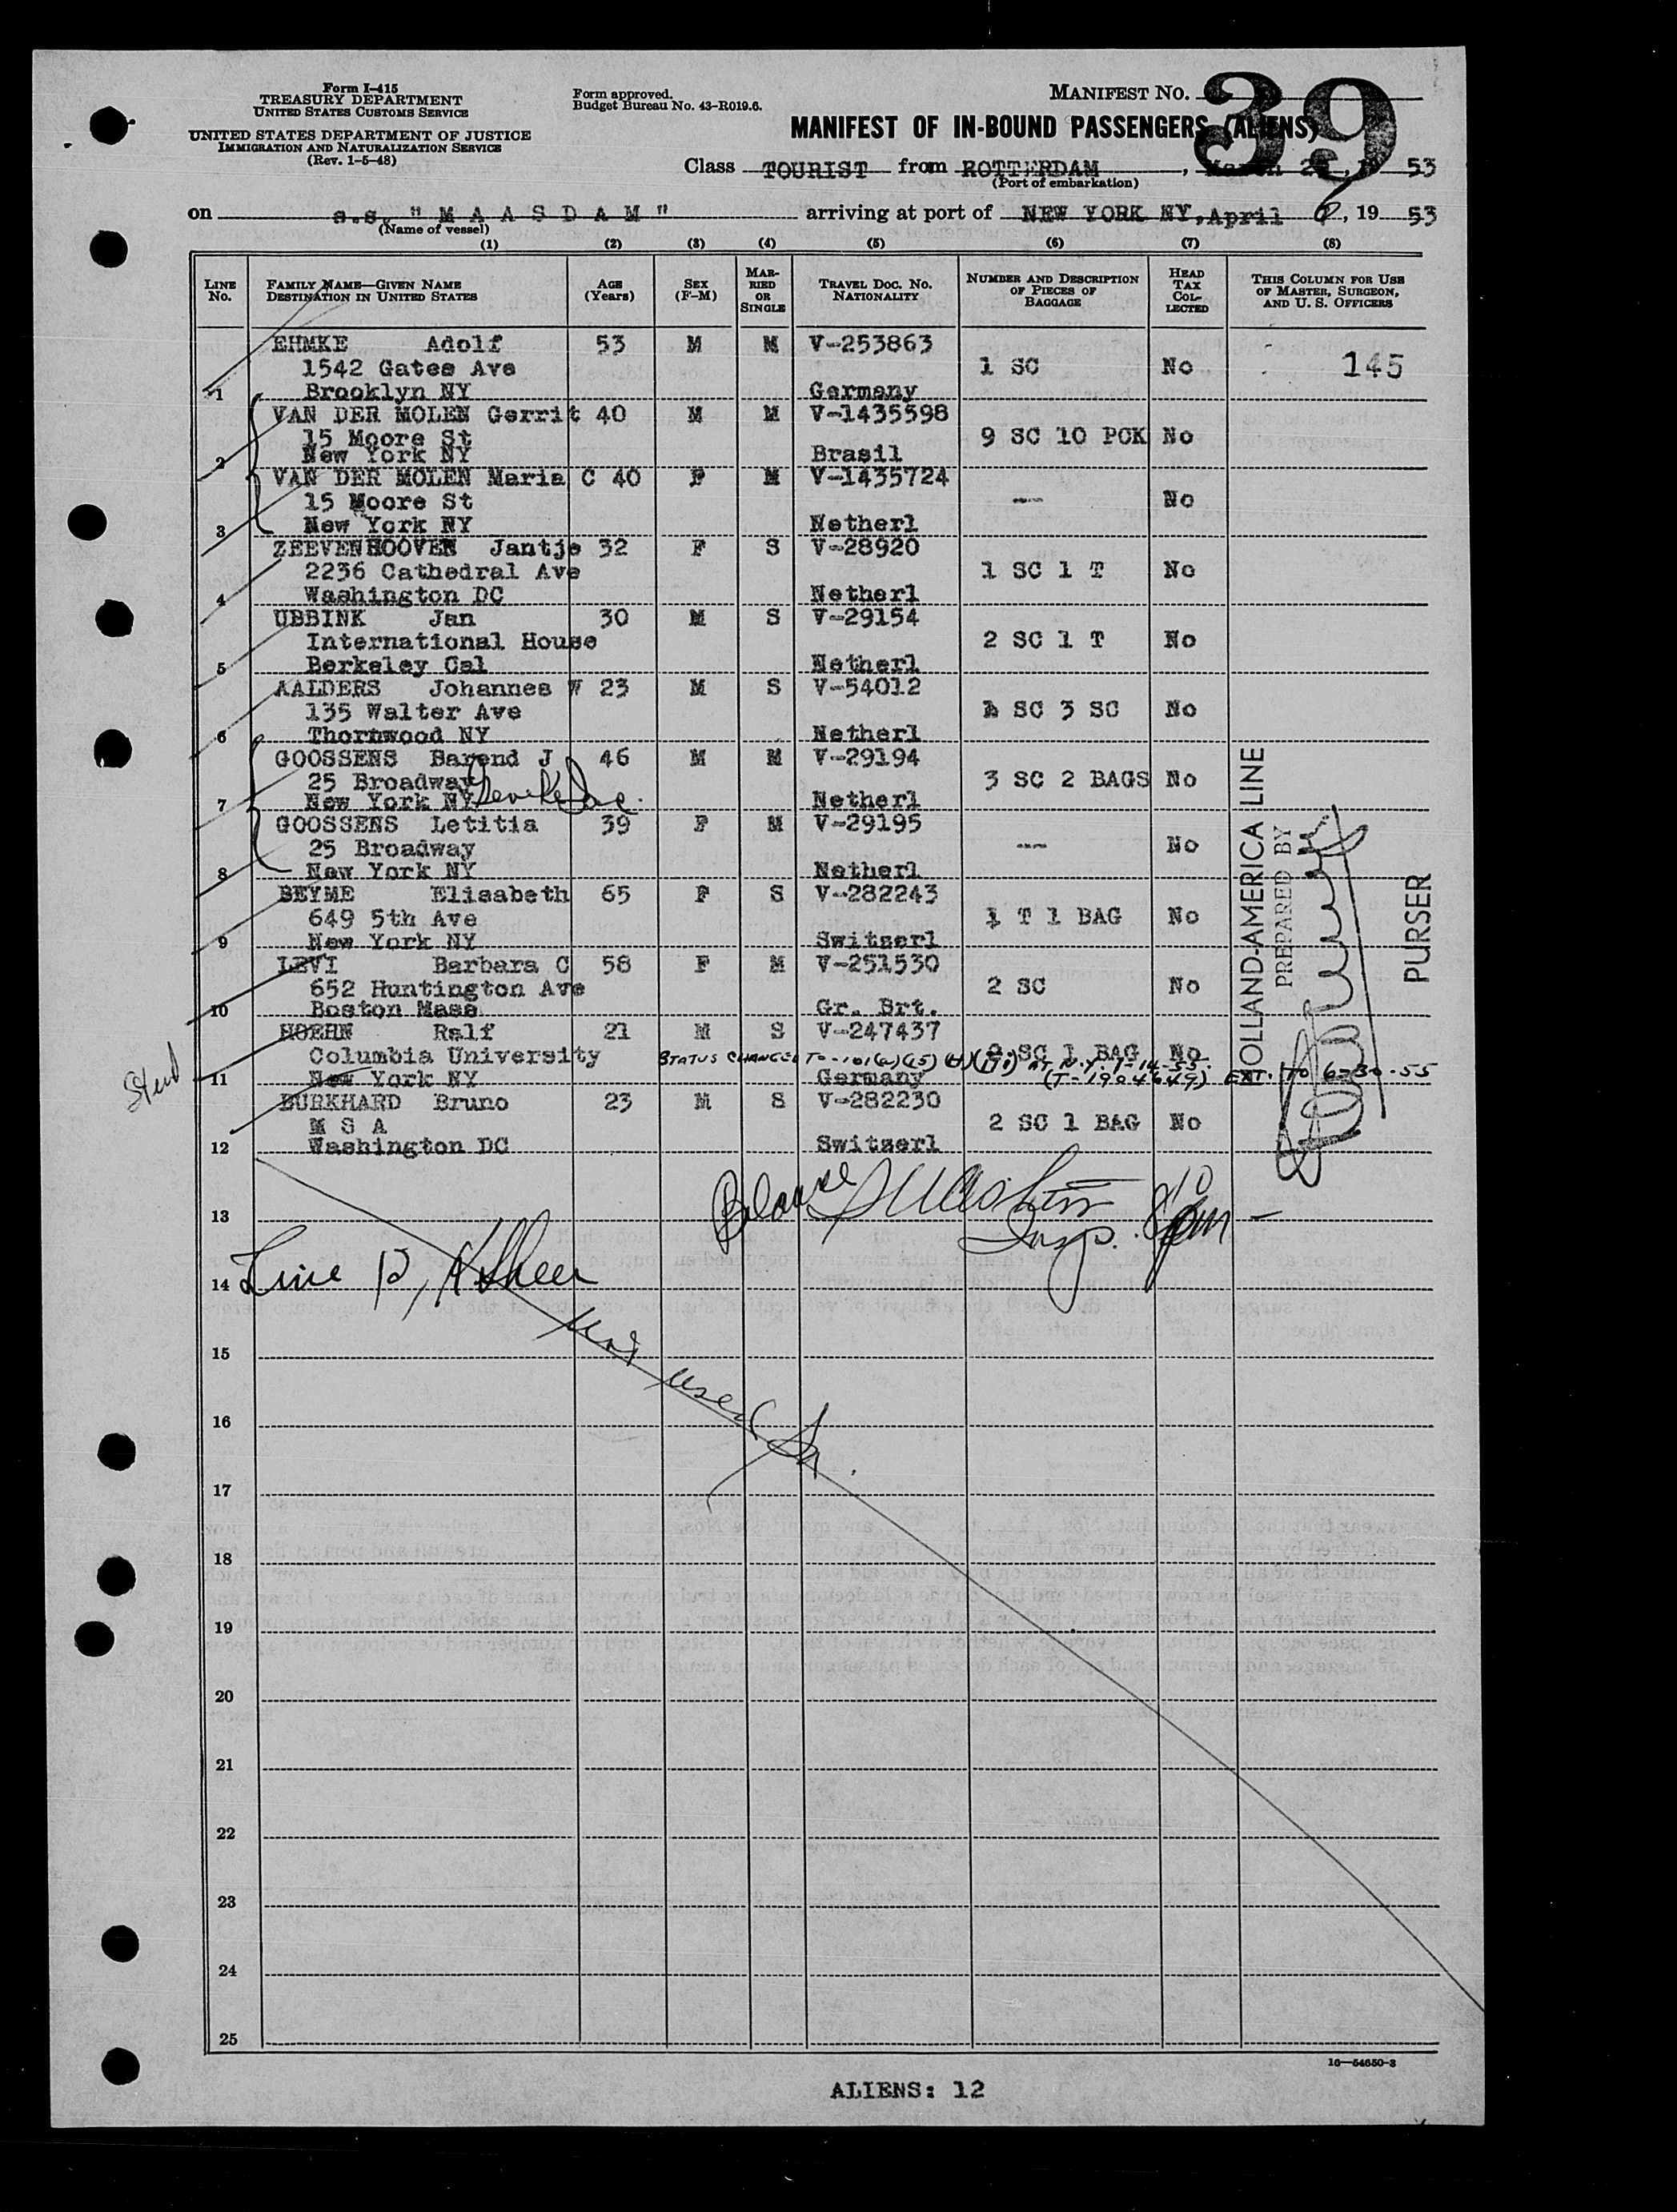 Form I-415
TREASURY DEPARTMENT
UNITED STATES CUSTOMS SERVICE
UNITED STATES DEPARTMENT OF JUSTICE
IMMIGRATION AND NATURALIZATION SERVICE
(Rev. 1-5-48)
Form approved.
Budget Bureau No. 43-R019.6.
MANIFEST NO. 39
MANIFEST OF IN-BOUND PASSENGERS (ALIENS)
Class TOURIST from ROTTERDAM, March 53
(Port of embarkation)
on s.s. "MAASDAM" arriving at port of NEW YORK NY, April 6, 19 53
(Name of vessel)
(1) (2) (3) (4) (5) (6) (7) (8)
LINE No. FAMILY NAME—GIVEN NAME DESTINATION IN UNITED STATES AGE (Years) SEX (F-M) MARRIED OR SINGLE TRAVEL DOC. NO. NATIONALITY NUMBER AND DESCRIPTION OF PIECES OF BAGGAGE HEAD TAX COLLECTED THIS COLUMN FOR USE OF MASTER, SURGEON, AND U. S. OFFICERS
EHMKE Adolf 53 M M V-253863
1542 Gates Ave 1 SC No 145
1 Brooklyn NY Germany
VAN DER MOLEN Gerrit 40 M M V-1435598
15 Moore St 9 SC 10 PCK No
2 New York NY Brasil
VAN DER MOLEN Maria C 40 F M V-1435724
15 Moore St --- No
3 New York NY Netherl
ZEEVENHOOVEN Jantje 32 F S V-28920
2236 Cathedral Ave 1 SC 1 T No
4 Washington DC Netherl
UBBINK Jan 30 M S V-29154
International House 2 SC 1 T No
5 Berkeley Cal Netherl
AALDERS Johannes W 23 M S V-54012
135 Walter Ave SC 3 SC No
6 Thornwood NY Netherl
GOOSSENS Barend J 46 M M V-29194
25 Broadway 3 SC 2 BAGS No
7 New York NY Netherl
GOOSSENS Letitia 39 F M V-29195
25 Broadway --- No
8 New York NY Netherl
BEYME Elisabeth 65 F S V-282243
649 5th Ave 1 T 1 BAG No
9 New York NY Switzerl
LEVI Barbara C 58 F M V-251530
652 Huntington Ave 2 SC No
10 Boston Mass Gr. Brt.
HOEHN Ralf 21 M S V-247437
Columbia University STATUS CHANGED TO 101(a)(15) SC 1 BAG No AT N.Y.
Stud 11 New York NY Germany (T-1904649) EXT. TO 6-30-55
BURKHARD Bruno 23 M S V-282230
M S A 2 SC 1 BAG No
12 Washington DC Switzerl
HOLLAND-AMERICA LINE
PREPARED BY
PURSER
Balance
13 Insp.
14 Line 12,
15 not
16 used
17
18
19
20
21
22
23
24
25
16—54650-3
ALIENS: 12